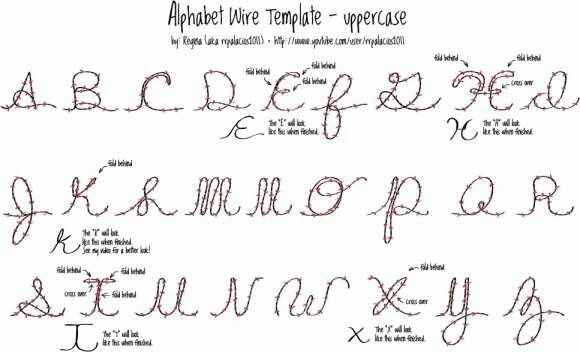 Alphabet Wire Template - uppercase
by: Regina (aka rrpalacios1011) - http://www.youtube.com/user/rrpalacios1011
fold behind
fold behind
fold behind
fold behind
cross over
A B C D E F G H I
E the "E" will look
like this when finished.
H the "H" will look
like this when finished.
fold behind
J K L M N O P Q R
K the "K" will look
like this when finished.
See my video for a better look!
fold behind
fold behind
cross over
fold behind
fold behind
cross over
S T U V W X Y Z
T the "T" will look
like this when finished.
X the "X" will look
like this when finished.